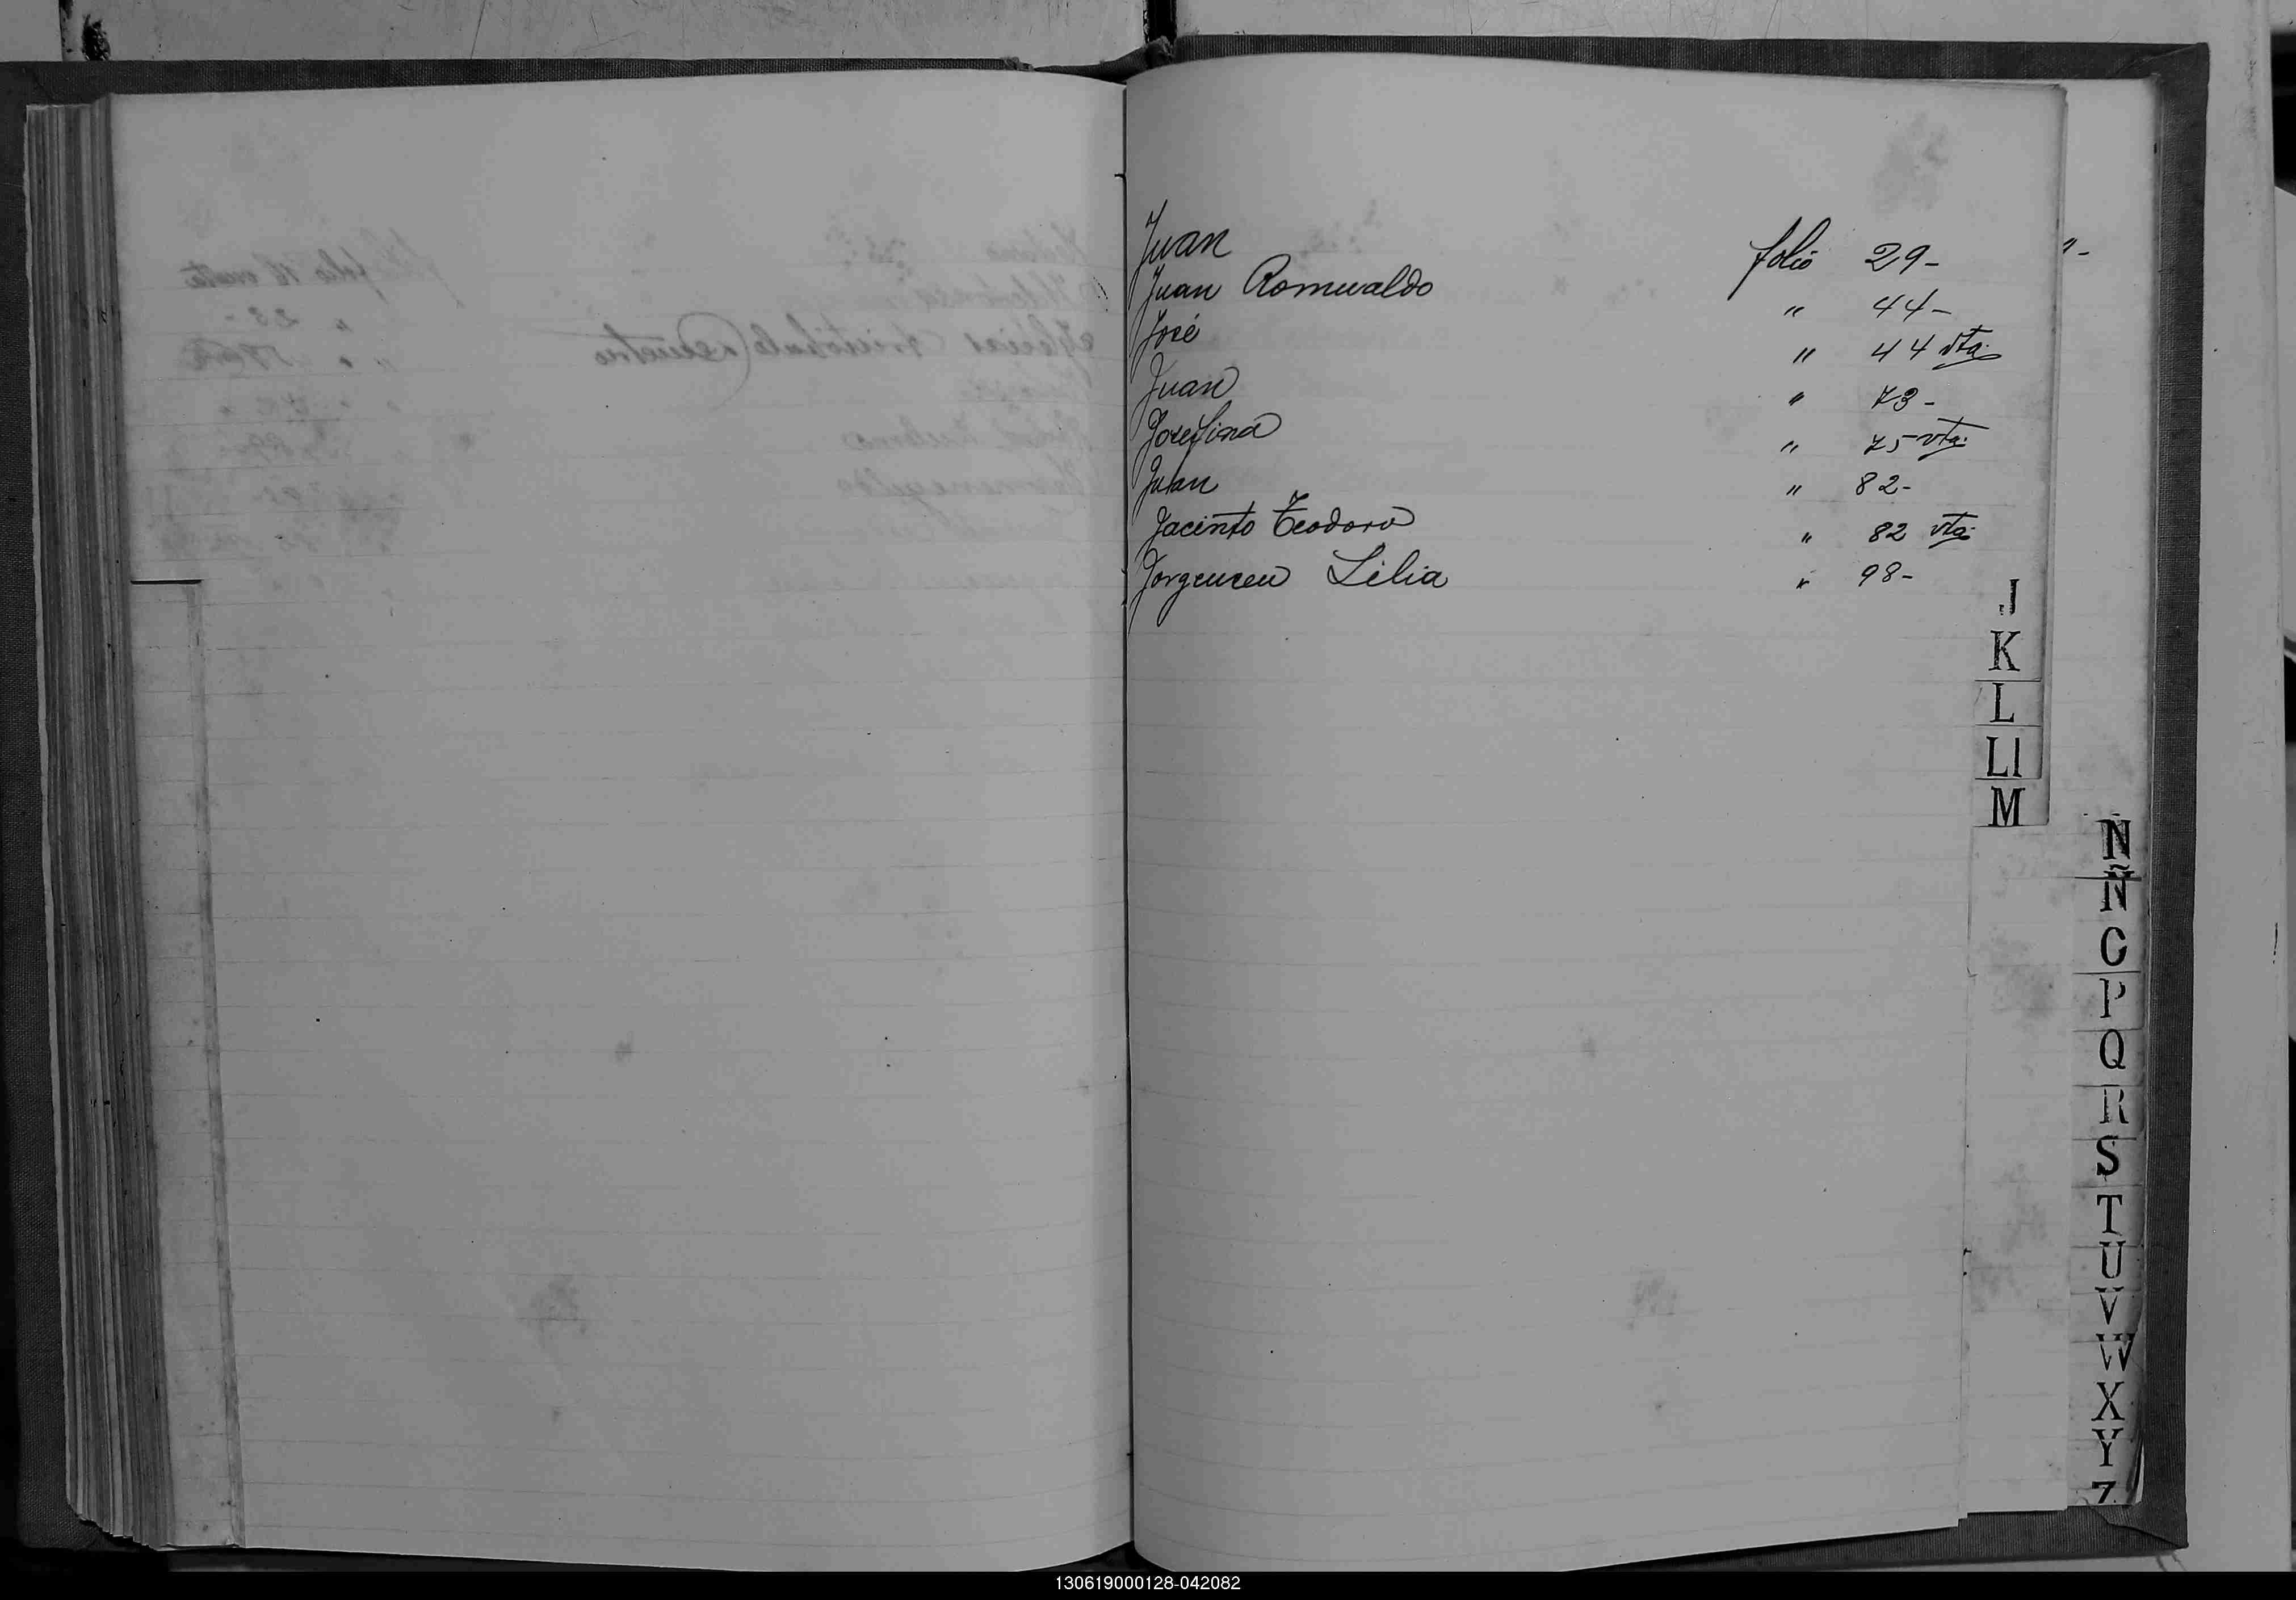 Juan folio 29-
Juan Romualdo " 44-
José " 44 vta.
Juan " 73-
Josefina " 75 vta.
Juan " 82-
Jacinto Teodoro " 82 vta.
Jorgensen Lilia " 98-
J
K
L
Ll
M
N
Ñ
O
P
Q
R
S
T
U
V
W
X
Y
Z
130619000128-042082